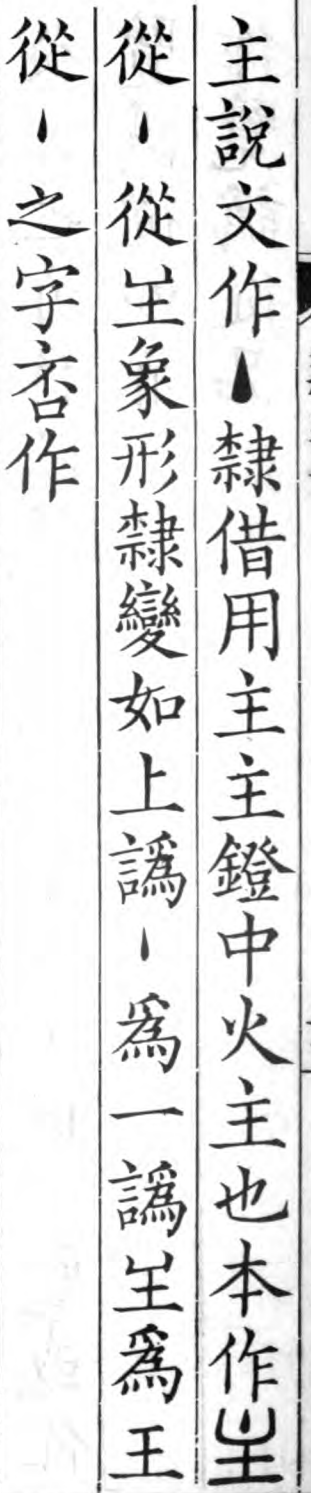 主說文作丶隸借用主主鐙中火主也本作𡉚
從丶從𡉚象形隸變如上譌丶爲一譌𡉚爲王
從丶之字杏作